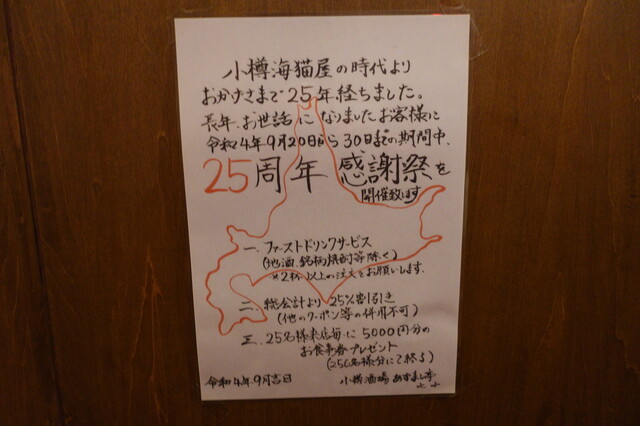 小樽海猫屋の時代より
おかげさまで25年経ちました。
長年、お世話になりましたお客様に
令和4年9月20日から30日までの期間中、
25周年 感謝祭を
開催致します
一、ファーストドリンクサービス
(地酒、銘柄焼酎等除く)
※2杯以上の注文をお願いします。
二、総会計より25%割引き
(他のクーポン等の併用不可)
三、25名様来店毎に5000円分の
お食事券プレゼント
(250名様分にて終る)
令和4年9月吉日
小樽酒場 あずまし亭